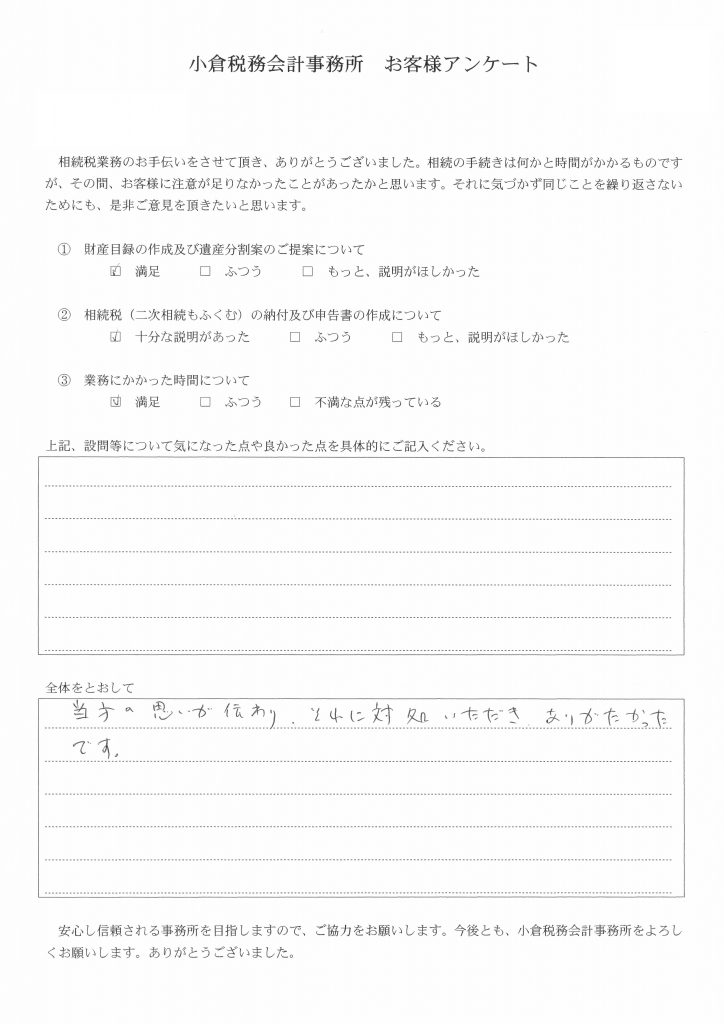 小倉税務会計事務所　お客様アンケート
相続税業務のお手伝いをさせて頂き、ありがとうございました。相続の手続きは何かと時間がかかるものです
が、その間、お客様に注意が足りなかったことがあったかと思います。それに気づかず同じことを繰り返さない
ためにも、是非ご意見を頂きたいと思います。
①　財産目録の作成及び遺産分割案のご提案について
☑　満足　□　ふつう　□　もっと、説明がほしかった
②　相続税（二次相続もふくむ）の納付及び申告書の作成について
☑　十分な説明があった　□　ふつう　□　もっと、説明がほしかった
③　業務にかかった時間について
☑　満足　□　ふつう　□　不満な点が残っている
上記、設問等について気になった点や良かった点を具体的にご記入ください。
全体をとおして
当方の思いが伝わり、それに対処いただき ありがたかった
です。
安心し信頼される事務所を目指しますので、ご協力をお願いします。今後とも、小倉税務会計事務所をよろし
くお願いします。ありがとうございました。